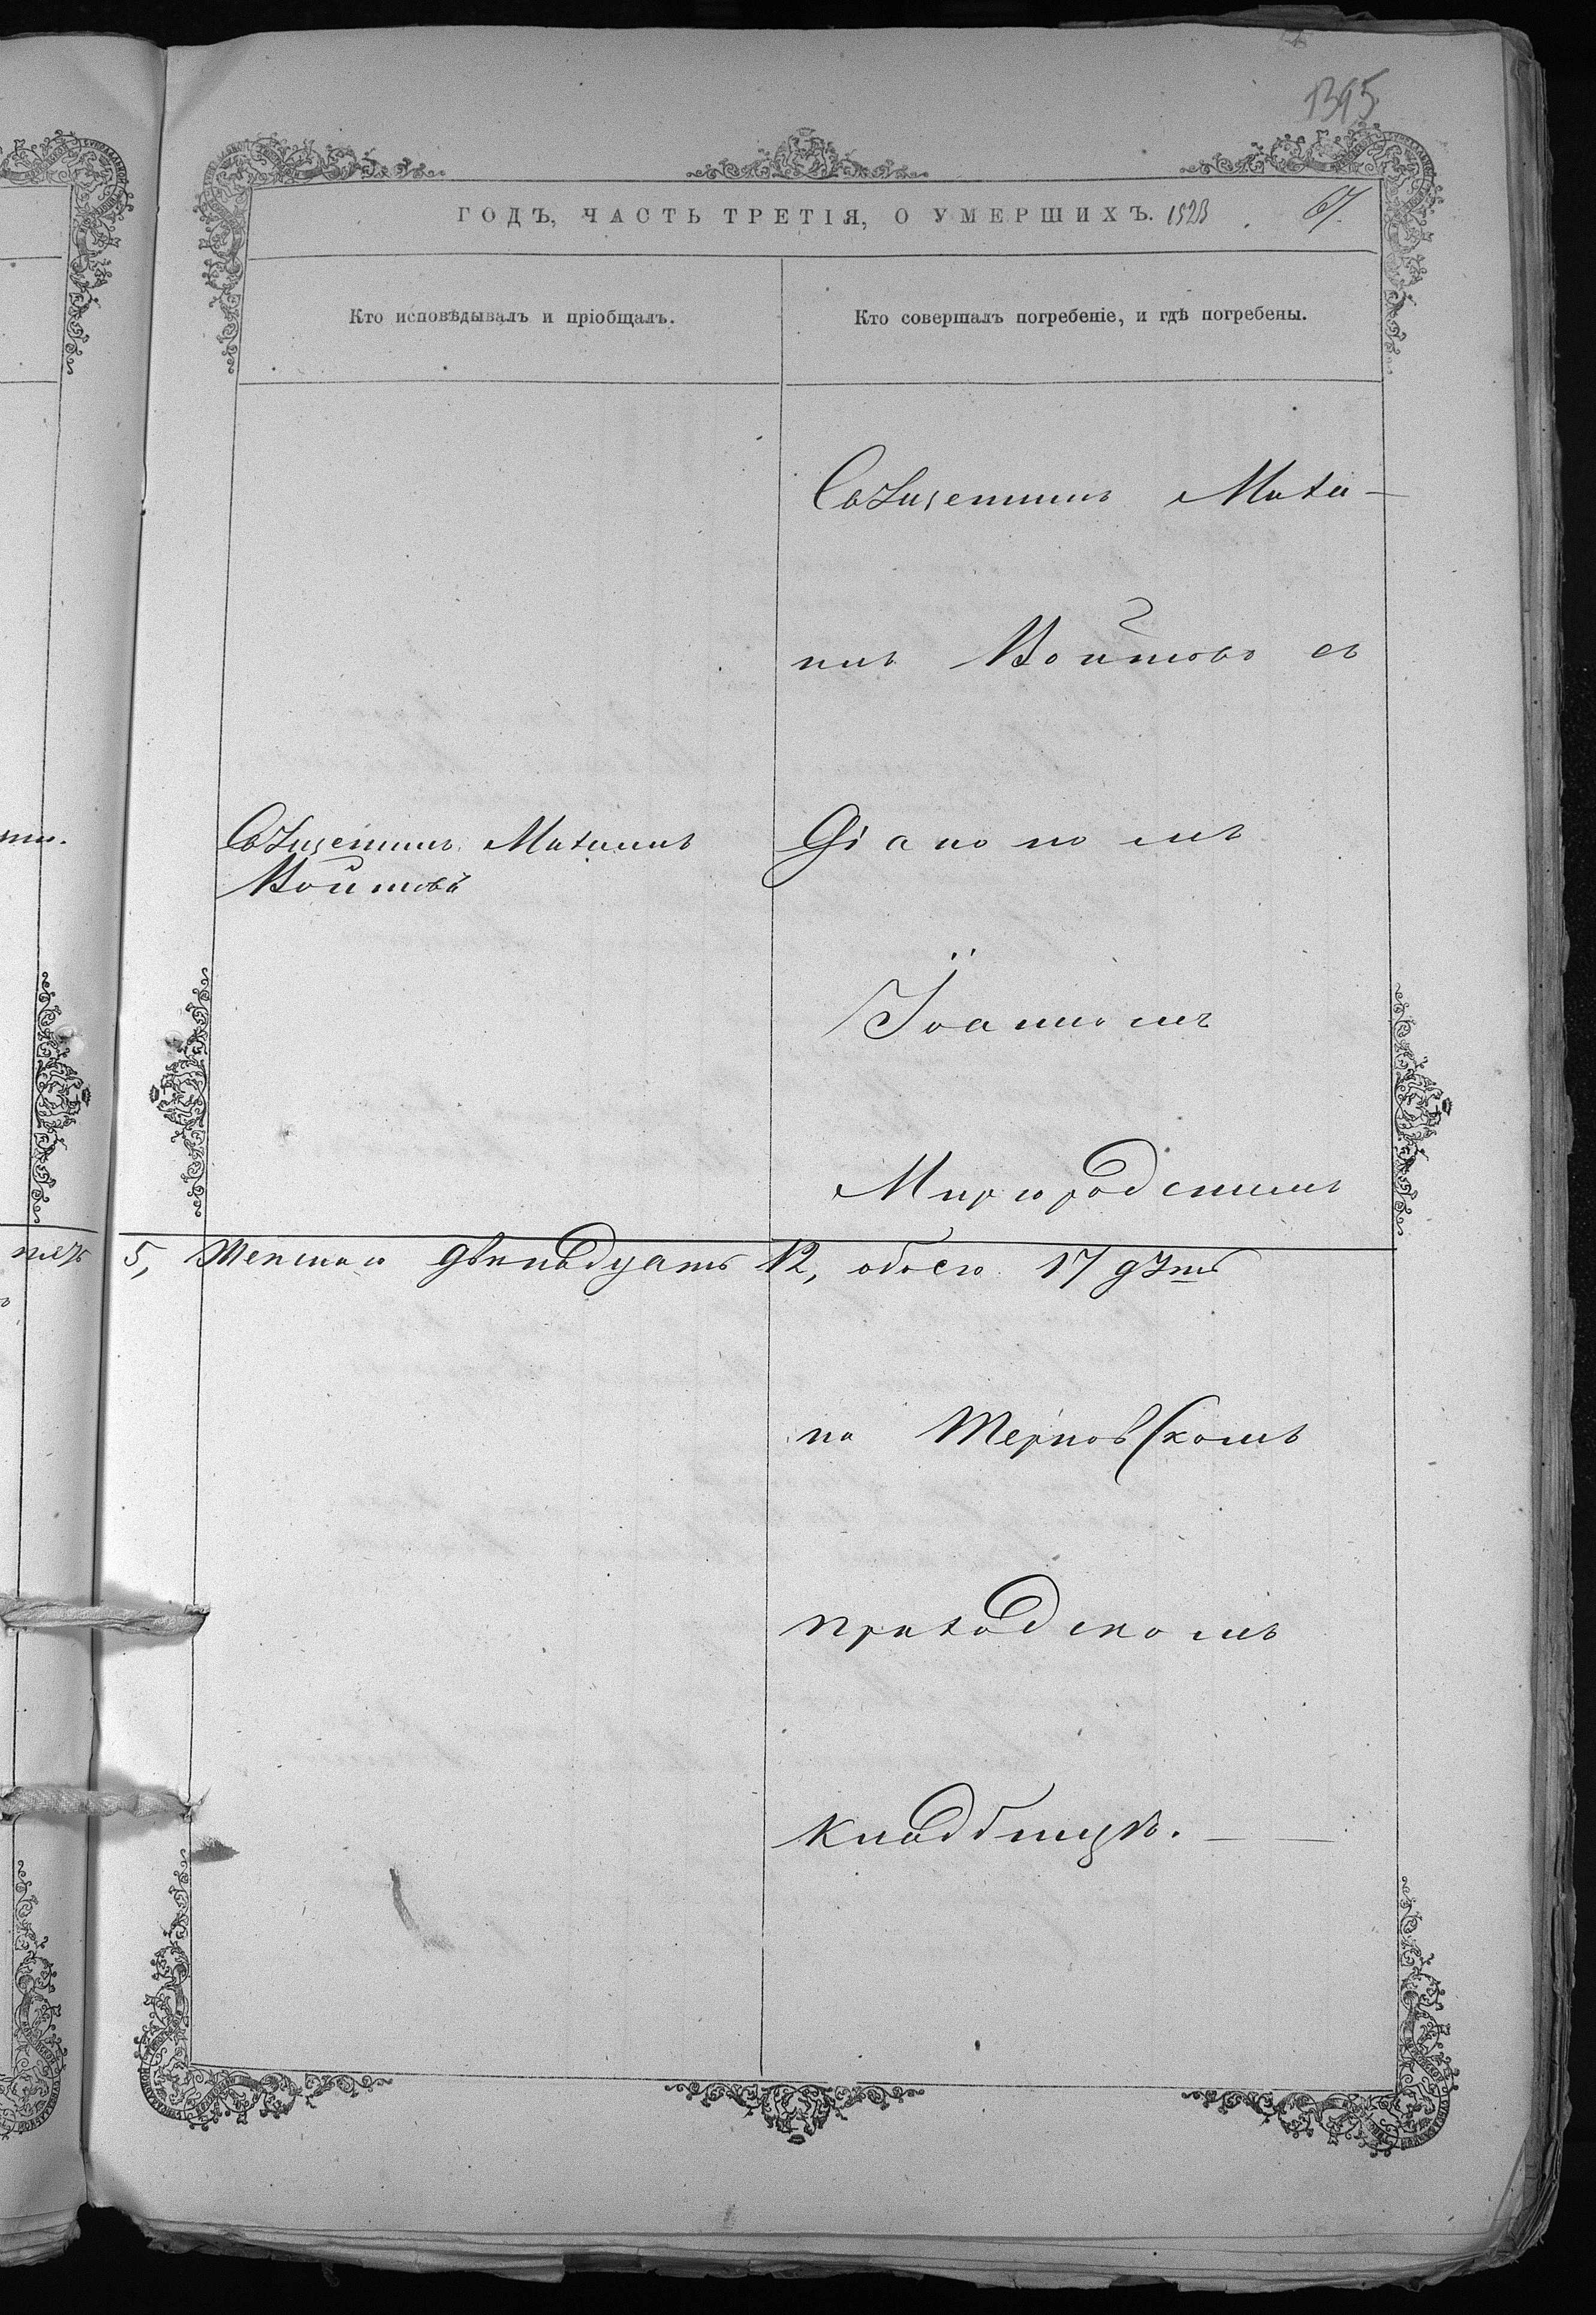 1395
ГОДЪ, ЧАСТЬ ТРЕТІЯ, О УМЕРШИХЪ.
67.
Кто исповѣдывалъ и пріобщалъ.
Кто совершалъ погребеніе, и гдѣ погребены.
Священникъ Михаилъ
Войтовъ
Священникъ Михаи-
илъ Войтовъ съ
Діакономъ
Іоанномъ
Миргородскимъ
5, Женскаго двенадцать 12, обоего 17 дѣтей
на Терновскомъ
приходскомъ
кладбищѣ.